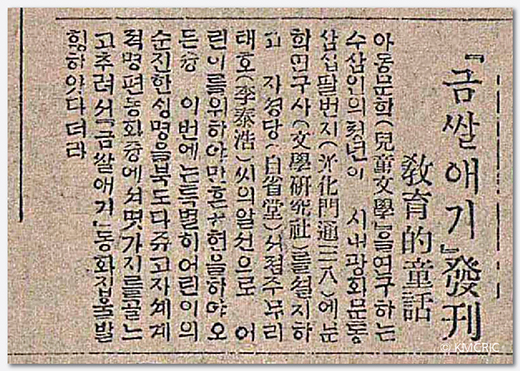 『금쌀애기』發刊
敎育的童話
아동문학(兒童文學)을연구하는
수삼인의청년이 시내광화문통
삼십팔번지(光化門通三八)에문
학연구사(文學硏究社)를설치하
고 자성당(自省堂)서점주무리
태호(李泰浩)씨의알선으로 어
린이를위하야만흔공헌을하야오
든중 이번에는특별히어린이의
순진한심명을북도다쥬고자세계
적명편동화중에서몃가지를골느
고추려서『금쌀애기』동화집을발
힝하얏다더라
© KMCRIC